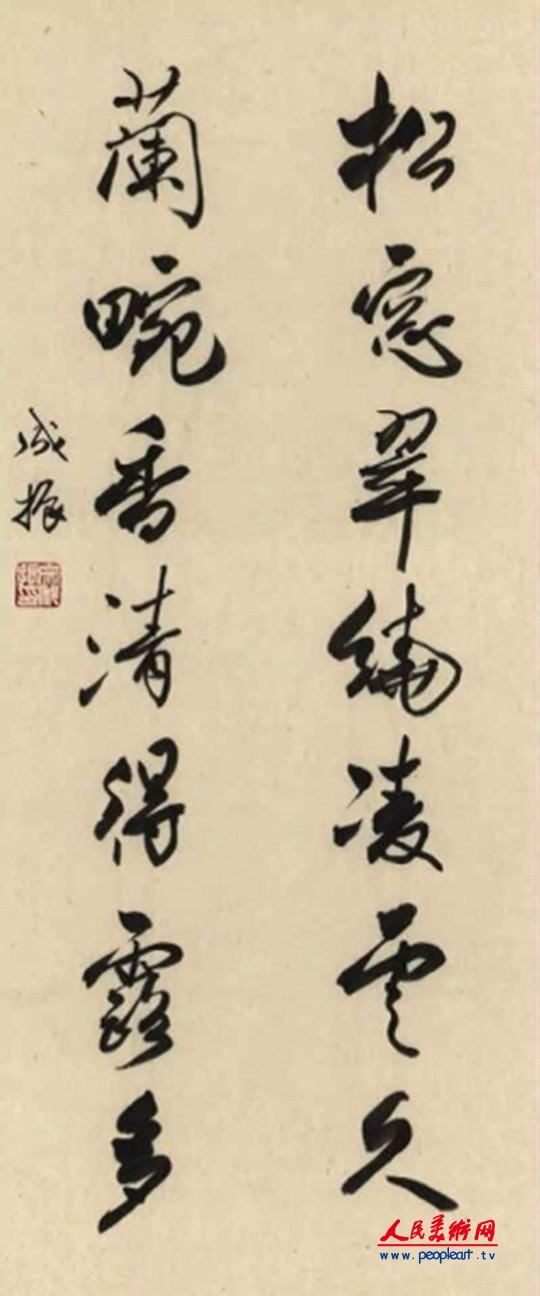 松窓翠綸凌雲久
蘭畹香清得露多
成振
人民美術网
www.peopleart.tv